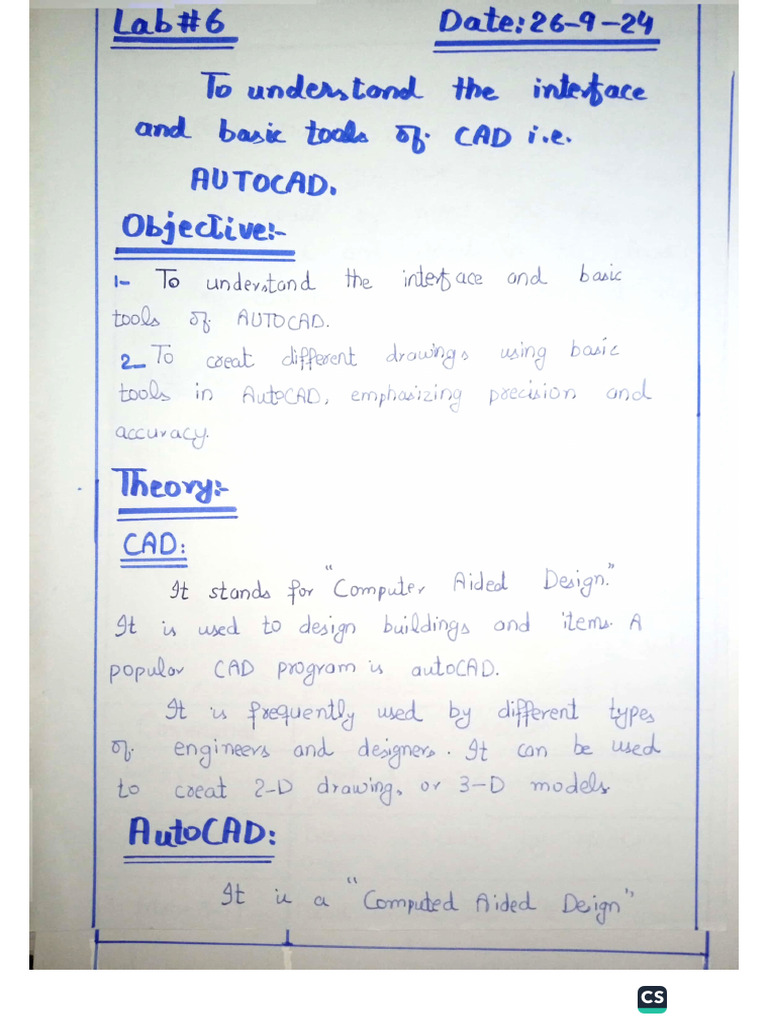 Lab#6 Date:26-9-24
To understand the interface
and basic tools of CAD i.e.
AUTOCAD.
Objective:-
1- To understand the interface and basic
tools of AUTOCAD.
2- To creat different drawings using basic
tools in AutoCAD, emphasizing precision and
accuracy.
Theory:-
CAD:
It stands for "Computer Aided Design."
It is used to design buildings and items. A
popular CAD program is autoCAD.
It is frequently used by different types
of engineers and designers. It can be used
to creat 2-D drawing, or 3-D models.
AutoCAD:
It is a "Computed Aided Deign"
CS